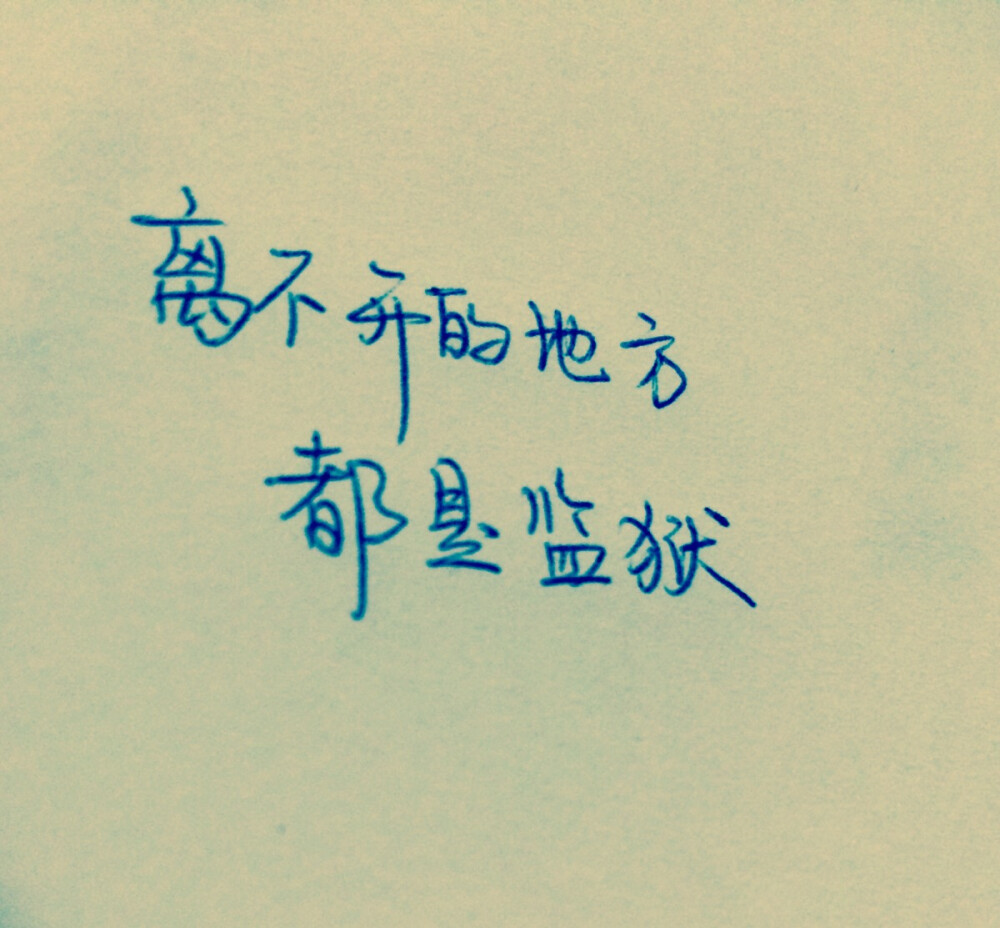 离不开的地方
都是监狱